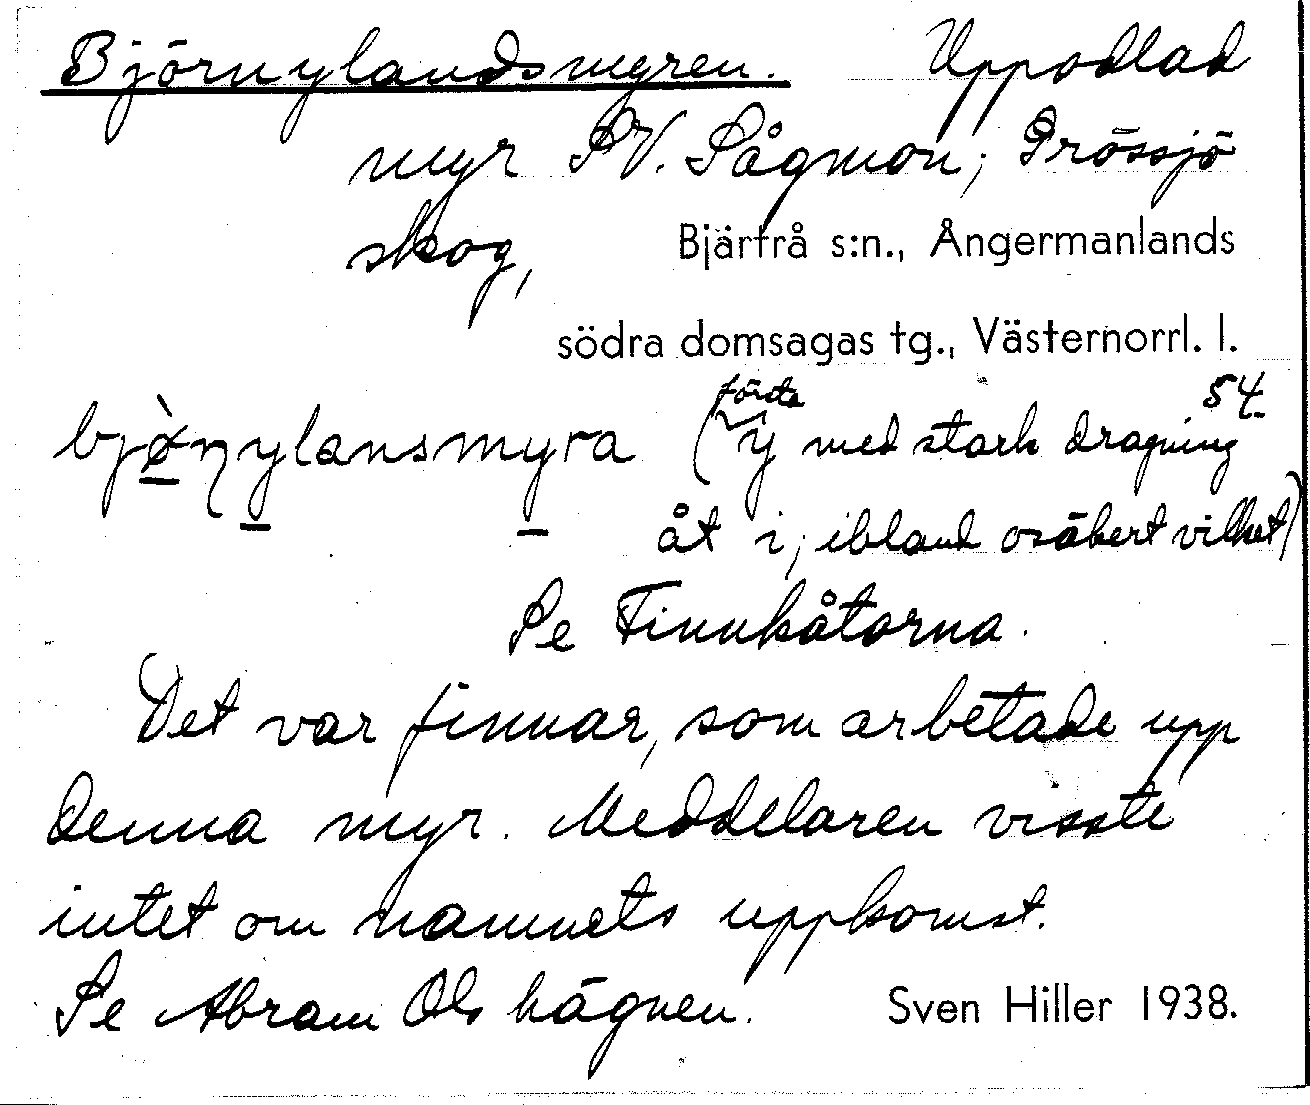 Björnylandsmyren. Uppodlad
myr SV. Sågmon, Prössjö
skog, Bjärtrå s:n., Ångermanlands
södra domsagas tg., Västernorrl. l.
54.
bjø̀nylansmyra (första y med stark dragning
åt i, ibland osäkert vilket)
Se Finnkåtorna.
Det var finnar, som arbetade upp
denna myr. Meddelaren visste
intet om namnets uppkomst.
Se Abram Ols hägnen. Sven Hiller 1938.